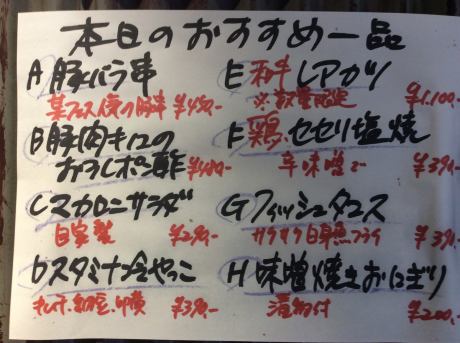 本日のおすすめ一品
A 豚バラ串
¥450-
B 豚肉キムチの
おろしポン酢 ¥480-
C マカロニサラダ
自家製 ¥290-
D スタミナ冷やっこ
キムチ、納豆、卵黄 ¥390-
E 和牛レアカツ
※数量限定 ¥1.100-
F 鶏セセリ塩焼
辛味噌で ¥390-
G フィッシュタコス
サクサク白身魚フライ ¥390-
H 味噌焼きおにぎり
漬物付 ¥200-